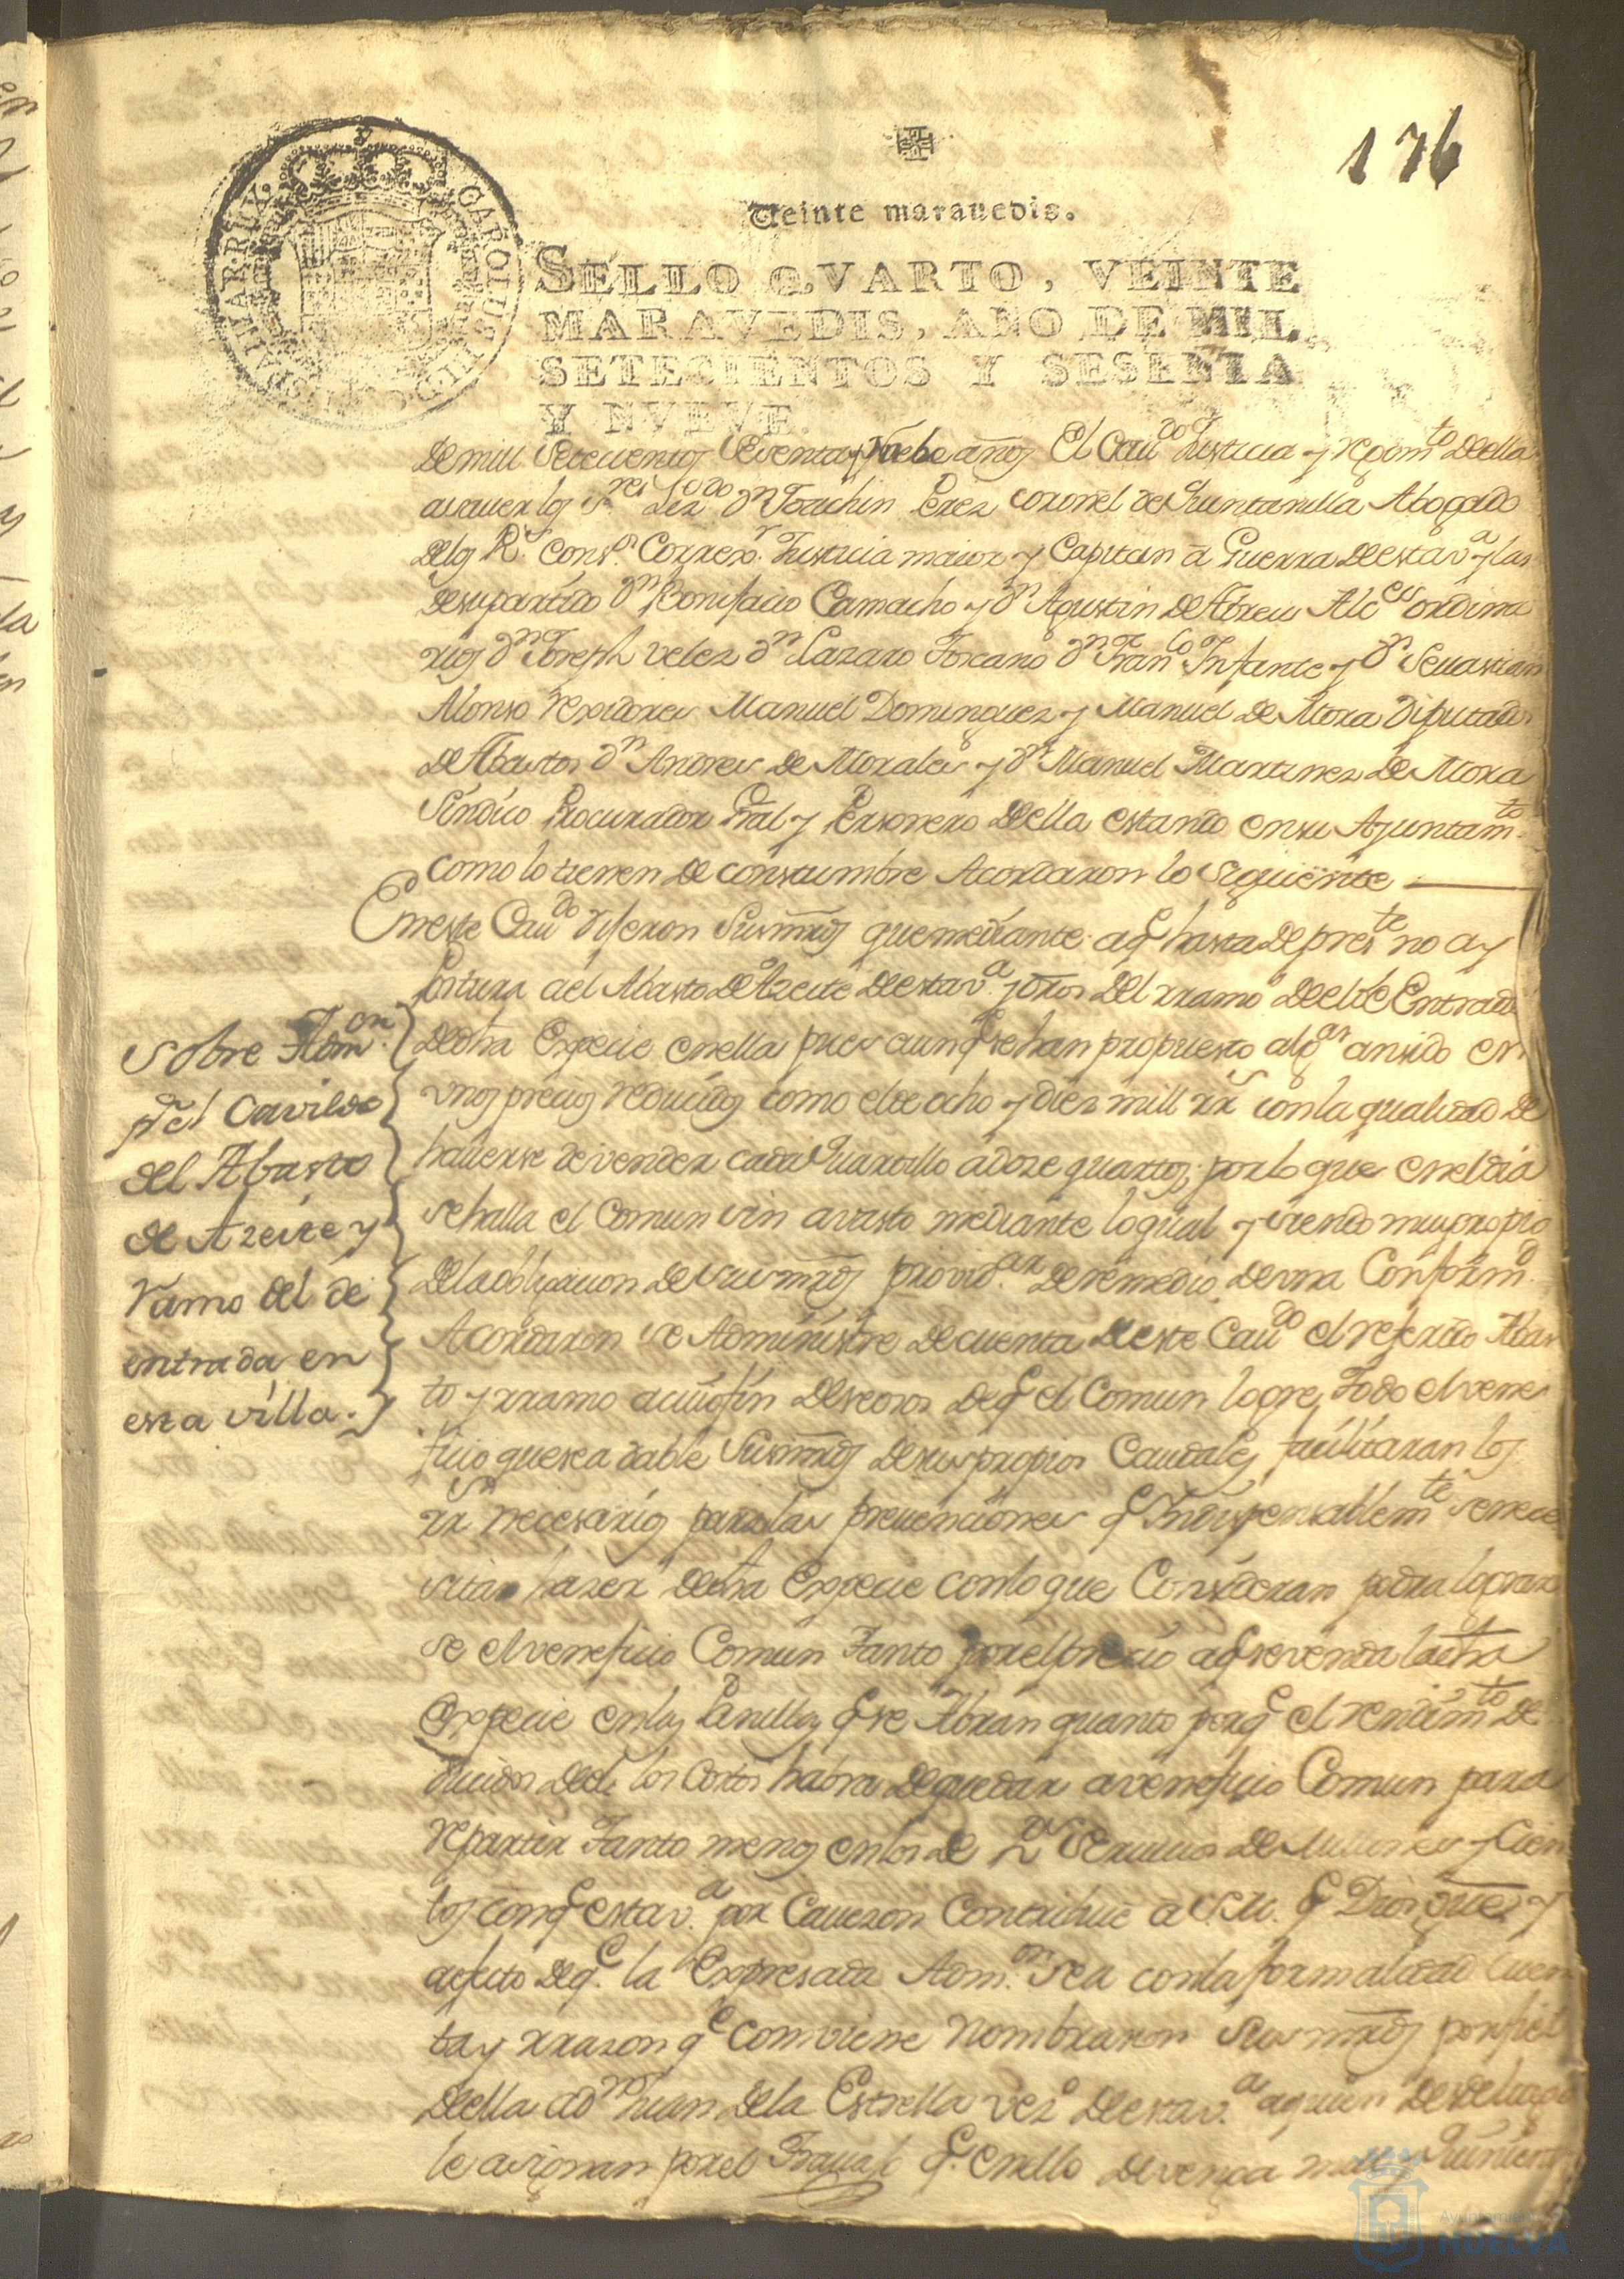 176
Veinte marauedis.
SELLO QVARTO, VEINTE
MARAVEDIS, AÑO DE MIL
SETECIENTOS Y SESENTA
Y NVEVE.
CAROLUS III D G HISPANIAR REX
de mill setecientos sesenta y Nuebe años El Caudo Justicia y reximto de ella
auauer los Sres Lizdo Dn Joachin Perez coronel de Quintanilla Abogado
de los Rs Conss Correxr Justicia maior y Capitan â Guerra de esta va y las
de su partido Dn Bonifacio Camacho y Dn Agustin de Abreu Alces ordina
rios Dn Joseph velez Dn Lazaro Toscano Dn Franco Infante y Dn Seuastian
Alonso rexidores Manuel Dominguez y Manuel de Mora Diputados
de Abastos Dn Andres de Morales y Dn Manuel Martinez de Mora
Sindico Procurador Gral y Personero de ella estando en su Ayuntamto
como lo tienen de constumbre Acordaron lo siguiente
En este Caudo dijeron sus mrds que mediante a q hasta de preste no ay
Postura a el Abasto de Azeite de esta va y otros del rramo de el de Entrada
de dha Expecie en ella pues aunq se han propuesto algas an sido en
vnos precios reducidos como el de ocho y diez mill rrs con la qualidad de
hauerse de vender cada Quartillo a doze quartos; por lo que en el dia
se halla el Comun sin auasto mediante lo qual y siendo muy propio
de la obligacion de sus mrds providar de remedio de vna Conformd
Acordaron se Administre de cuenta de este Caudo el referido Abas
to y rramo a cuio fin deseosos de q el Comun logre todo el vene
ficio que sea dable sus mrds de sus propios Caudales facilitaran los
rrs necesarios para las preuenciones q Indispensablemte se nece
sitan haser de dha Expecie con lo que Consideran podra lograr
se el veneficio Comun tanto por el precio a q se venda la dha
Expecie en los q se Abran quanto porq el rendimto de
ducidos de el los Costos habra de quedar a veneficio Comun para
repartir tanto menos en los de Seruicios de Millones y Cien
tos con q esta va por Caueson Contribuie a S.M. q Dios gue y
a efecto de q la Expresada Admon sea con la formalidad cuen
ta y rrason q conviene Nombraron sus mrds por fiel
de ella a Dn Juan de la Estrella vezo de esta va a quien desde luego
le asignan por el Trauajo q en ello devenga mill Quinientos
Sobre Admon
pr el Cavildo
del Abasto
de Azeite y
ramo del de
entrada en
esta villa.
Ayuntamiento de
HUELVA